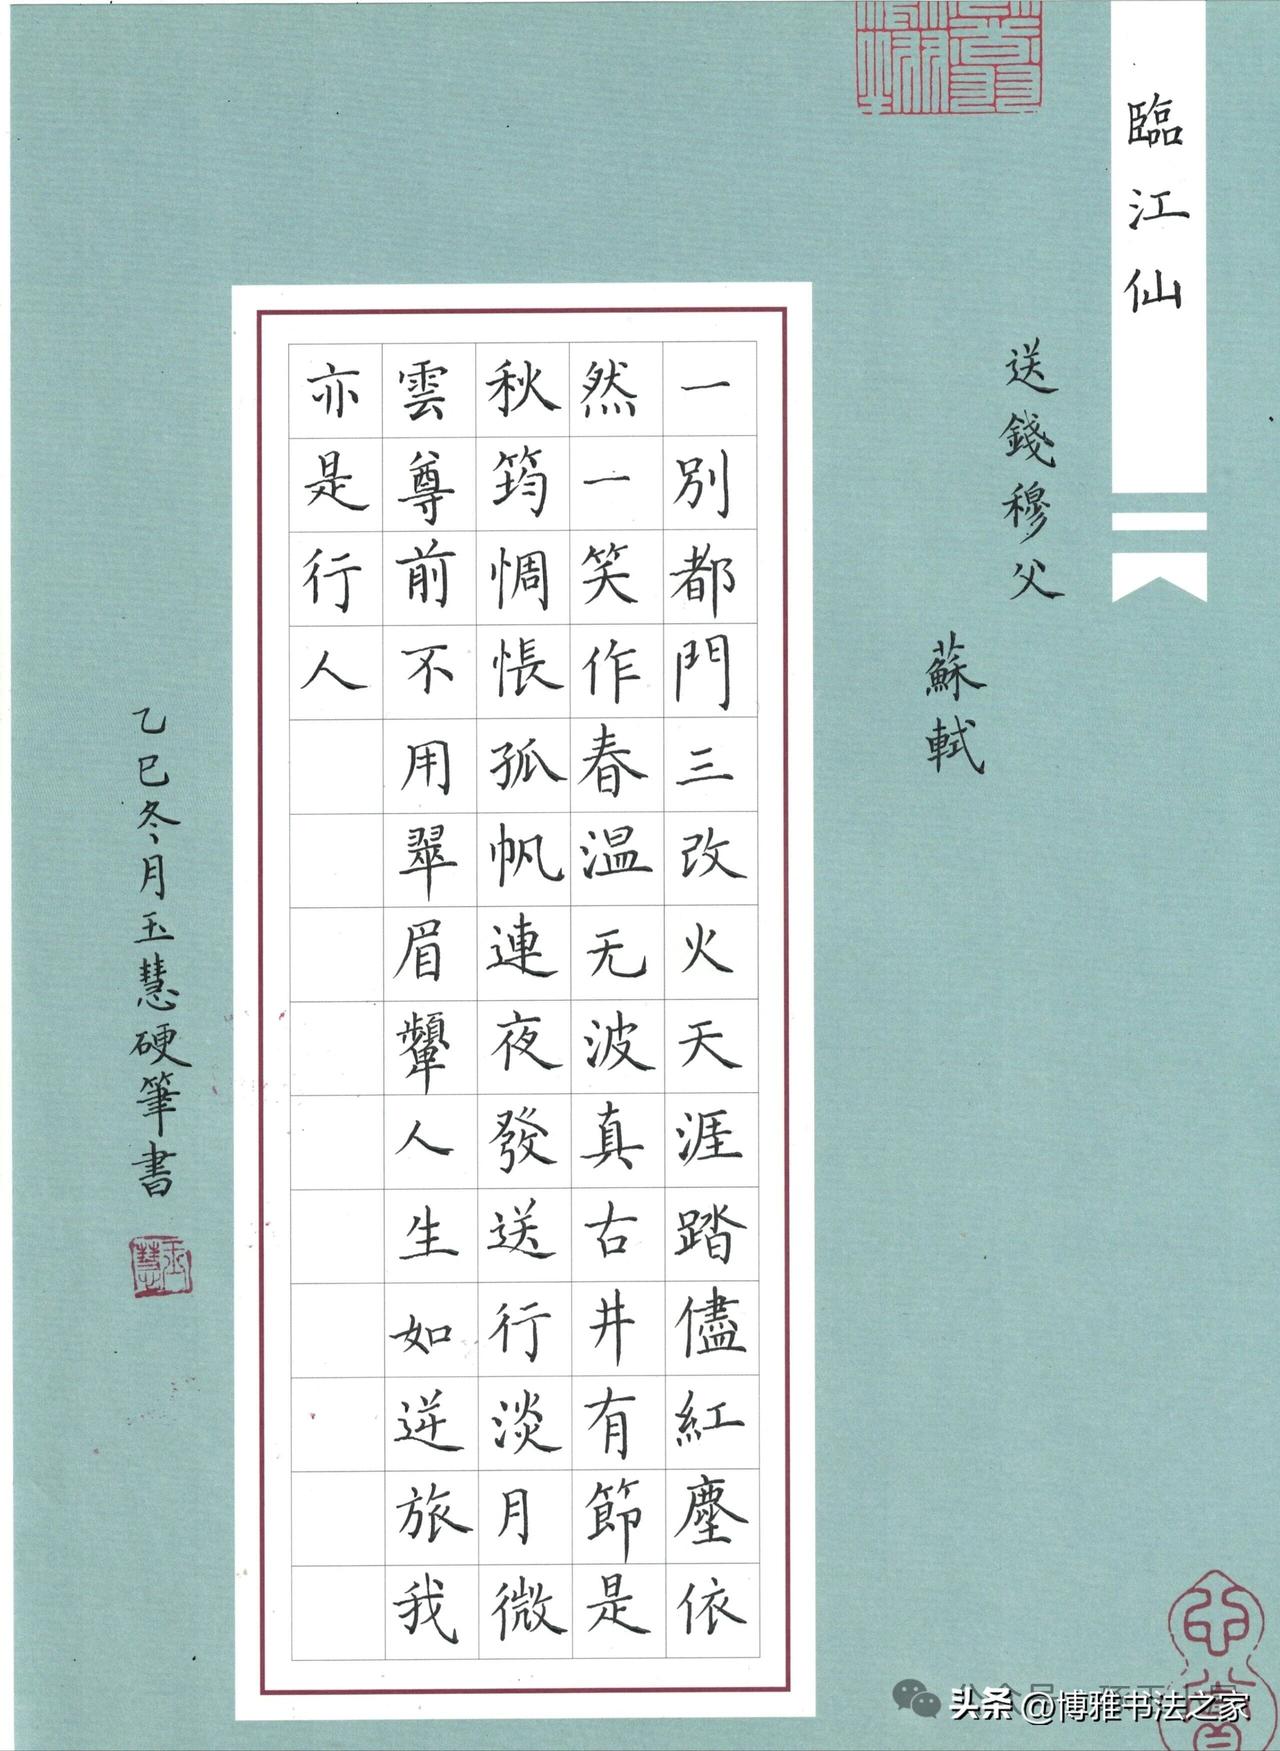 臨江仙
送錢穆父
蘇軾
一別都門三改火天涯踏儘紅塵依
然一笑作春温无波真古井有節是
秋筠惆悵孤帆連夜發送行淡月微
雲尊前不用翠眉顰人生如逆旅我
亦是行人
乙巳冬月玉慧硬筆書
玉慧
头条@博雅书法之家